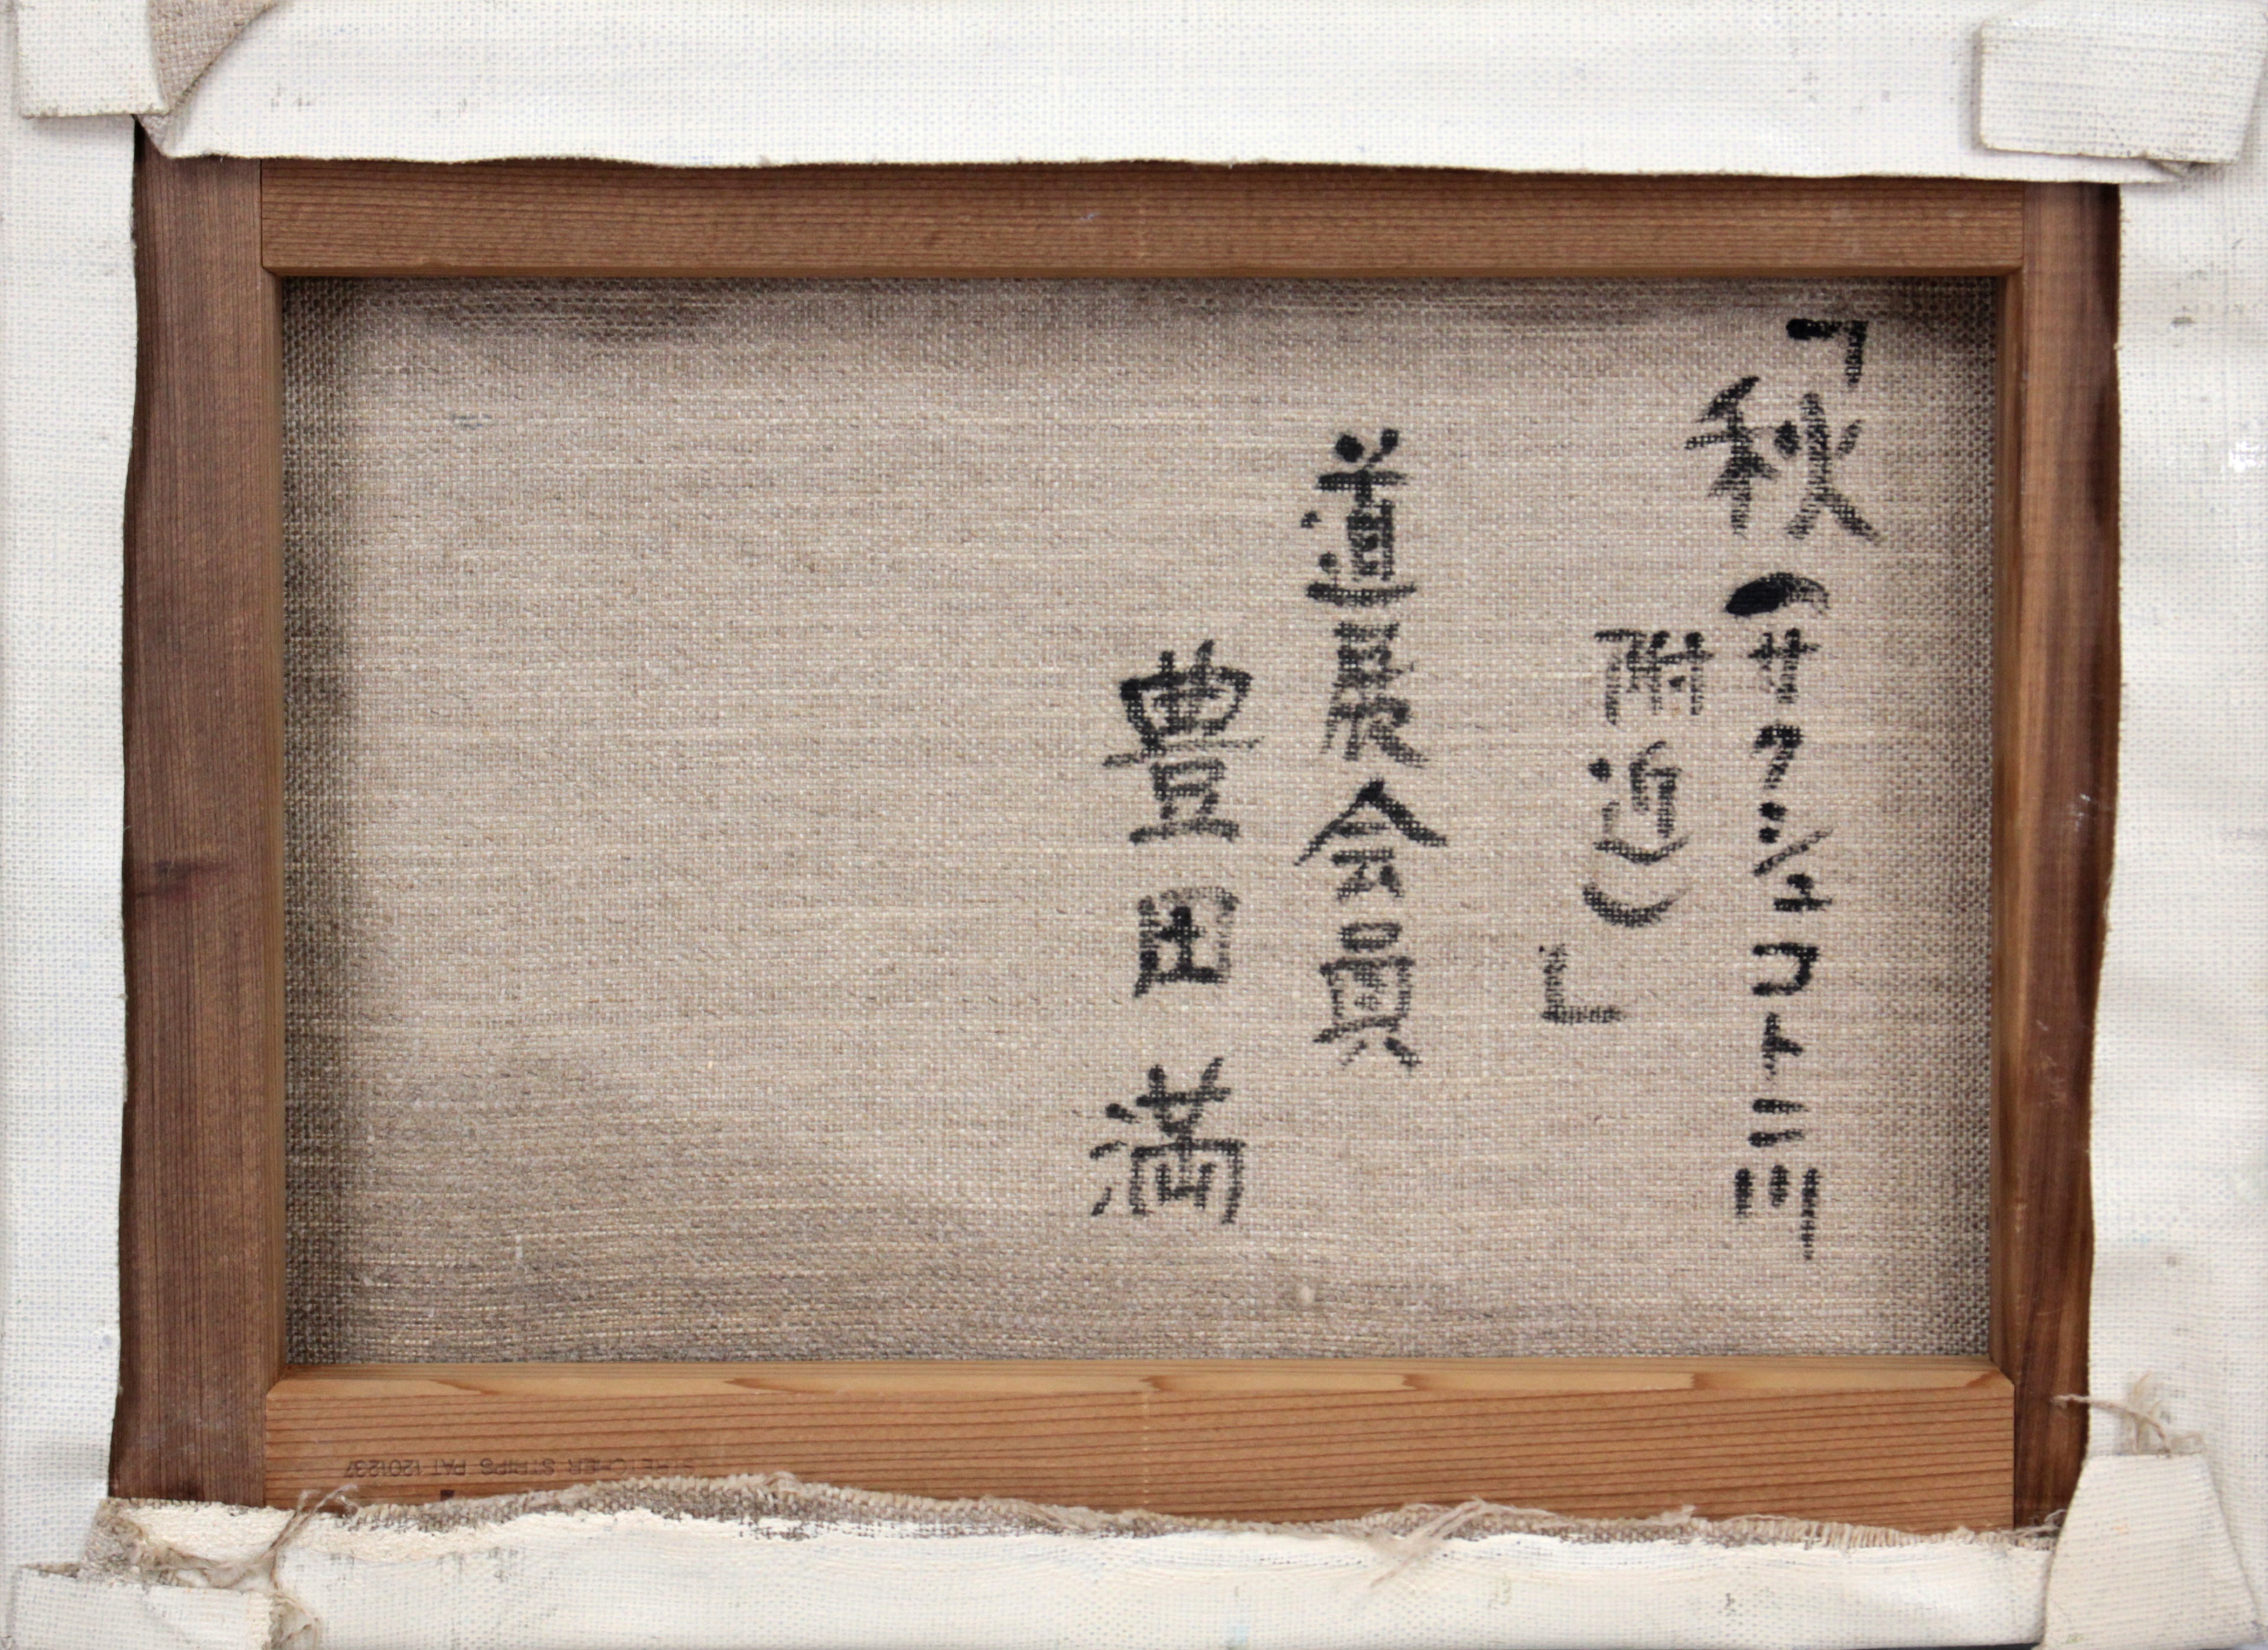 「秋（サクシュコトニ川
附近）」
道展会員
豊田満
STRETCHER STRIPS PAT 1201237